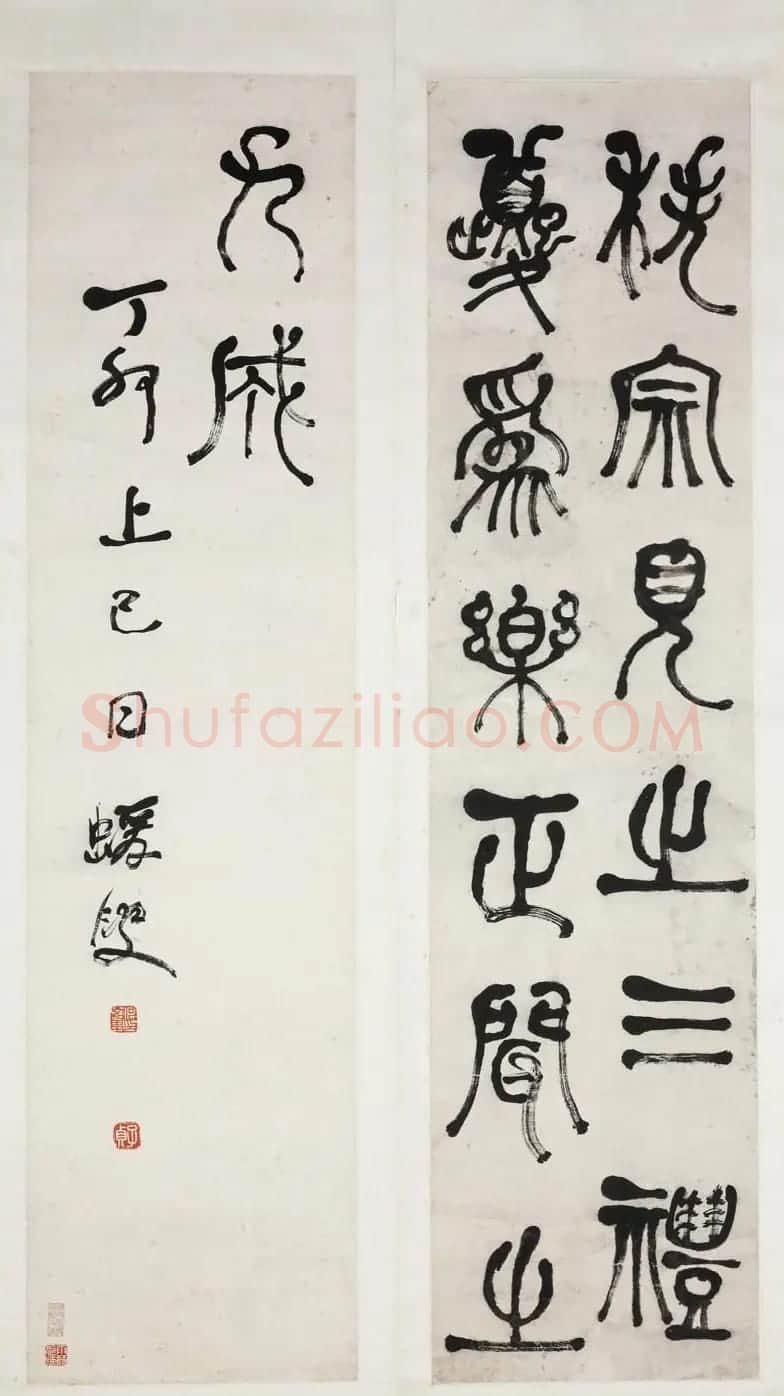 秩宗見之三禮
夔爲樂正聞之
九成
丁卯上巳日蝯叟
子貞
Shufaziliao.COM